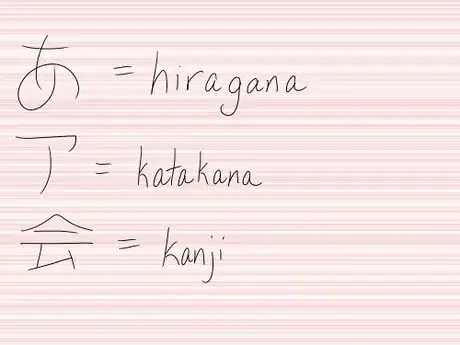 あ = hiragana
ア = katakana
会 = kanji